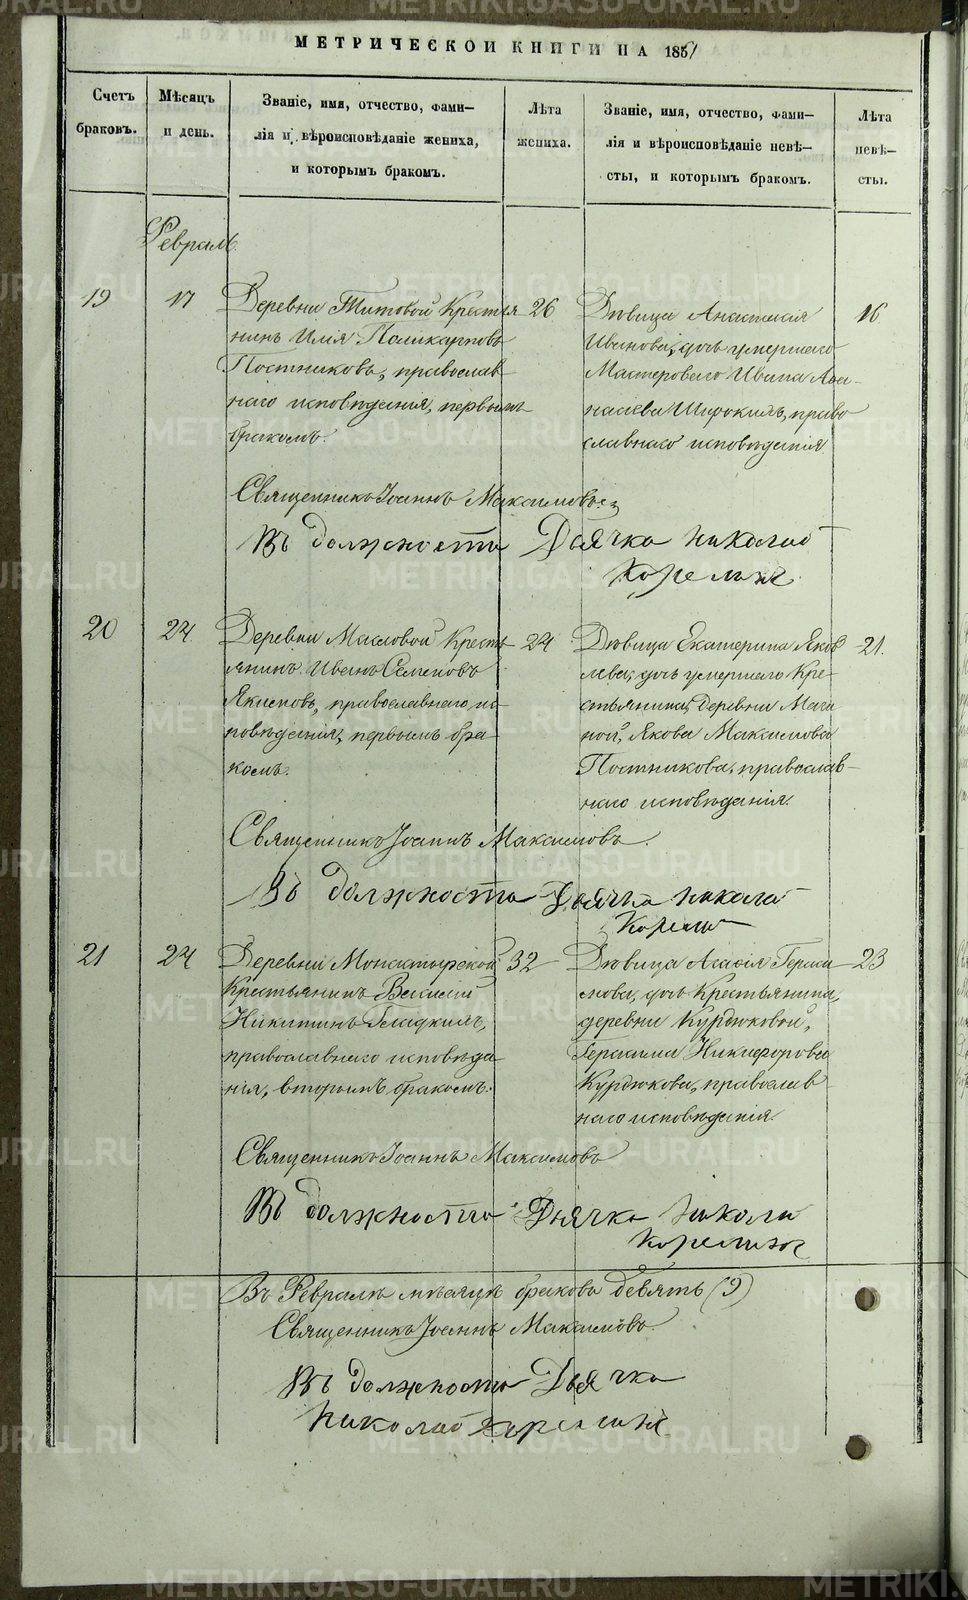 МЕТРИЧЕСКОЙ КНИГИ НА 1851
Счетъ браковъ.
Мѣсяцъ и день.
Званіе, имя, отчество, фами-
лія и вѣроисповѣданіе жениха,
и которымъ бракомъ.
Лѣта жениха.
Званіе, имя, отчество, фами-
лія и вѣроисповѣданіе невѣ-
сты, и которымъ бракомъ.
Лѣта невѣ-
сты.
Февраль.
19
17
Деревни Титовой Крестья
нинъ Илія Поликарповъ
Постниковъ, православ
наго исповѣданія, первымъ
бракомъ.
26
Дѣвица Анастасія
Иванова, дочь умершаго
Мастероваго Ивана Афа-
насіева Широкихъ, право
славнаго исповѣданія
16
Священникъ Іоаннъ Максимовъ.
Въ должности Дьячка Николай
Корелинъ
20
24
Деревни Масловой Кресть
янинъ Иванъ Семеновъ
Якимовъ, православнаго ис
повѣданія, первымъ бра
комъ.
24
Дѣвица Екатерина Яков
лева, дочь умершаго Кре-
стьянина, Деревни
Якова Максимова
Постникова, православ-
наго исповѣданія.
21.
Священникъ Іоаннъ Максимовъ.
Въ должности Дьячка Николай
Корелинъ
21
24
Деревни Монастырской
Крестьянинъ Василій
Никитинъ Гладкихъ,
православнаго исповѣда
нія, вторымъ бракомъ.
32
Дѣвица Агафія Гераси
мова, дочь Крестьянина,
деревни Курдюковой,
Герасима Никифорова
Курдюкова, православ
наго исповѣданія.
23
Священникъ Іоаннъ Максимовъ
Въ должности Дьячка Николай
Корелинъ
Въ Февралѣ мѣсяцѣ браковъ девять (9)
Священникъ Іоаннъ Максимовъ.
Въ должности Дьячка
Николай Корелинъ
METRIKI.GASO-URAL.RU